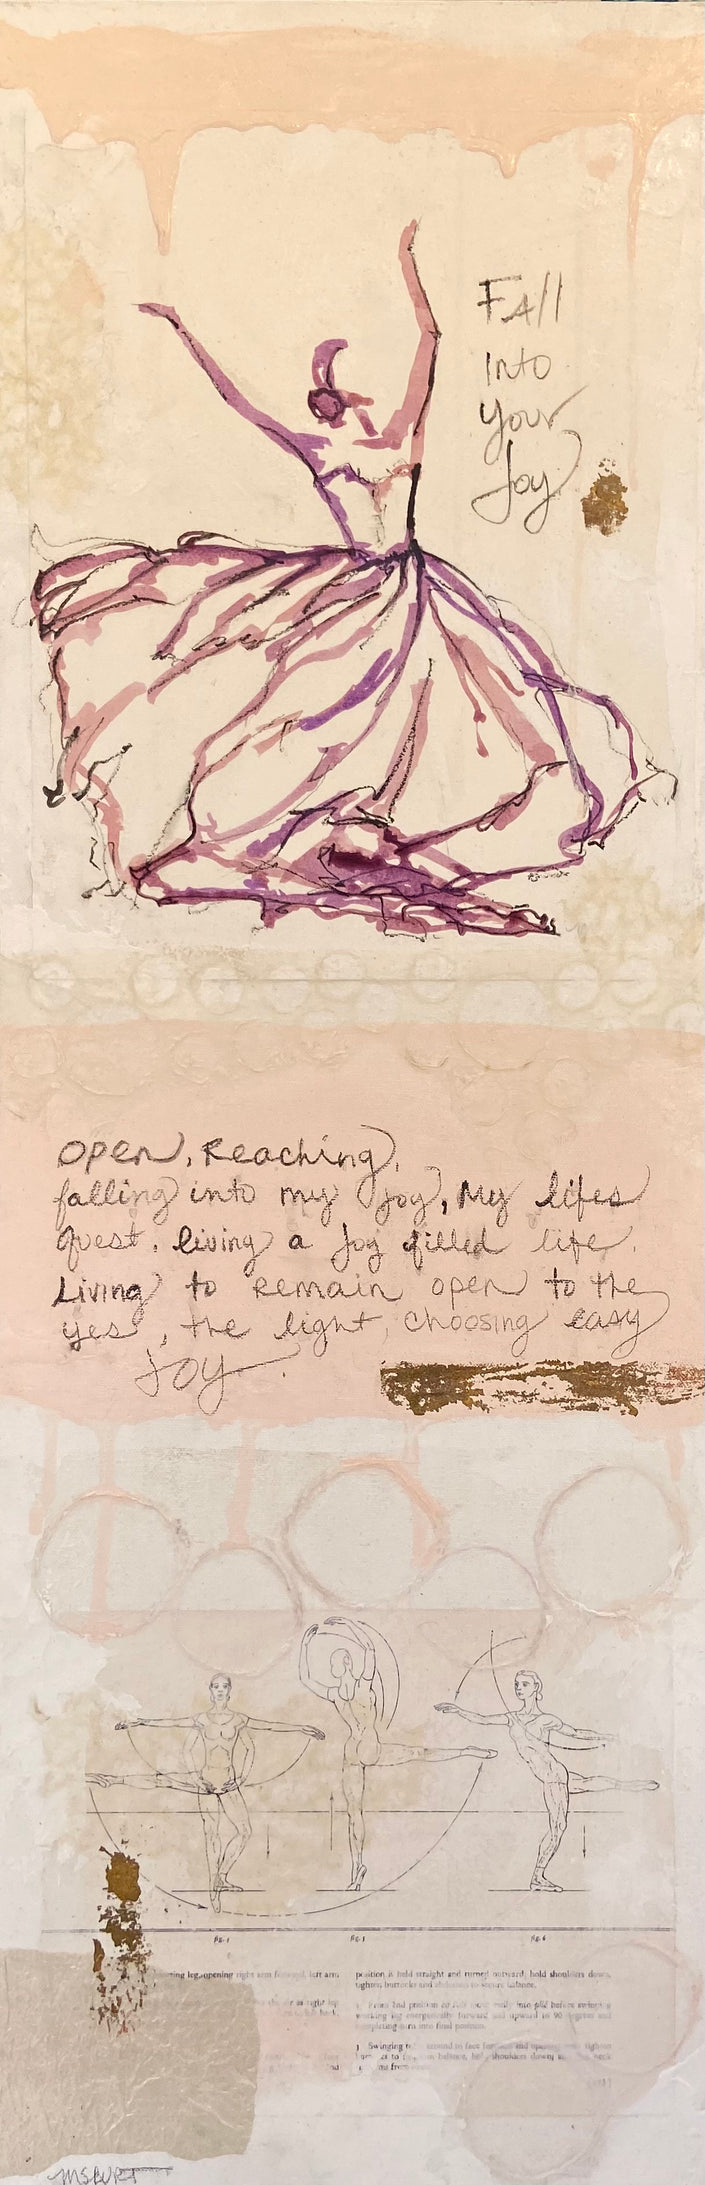 FAll
Into
your
Joy
open, Reaching,
falling into my joy, My lifes
quest. living a joy filled life.
Living to remain open to the
yes, the light, choosing easy
joy.
fig. 5
fig. 6
leg, opening right arm forward, left arm
position is held straight and turned outward; hold shoulders down,
tighten buttocks and abdomen to secure balance.
From 2nd position
into plié before swinging
working leg energetically forward and upward to 90 degrees and
turn into final position.
Swinging
around to face
balance, hold shoulders down,
neck
from
MSBURT